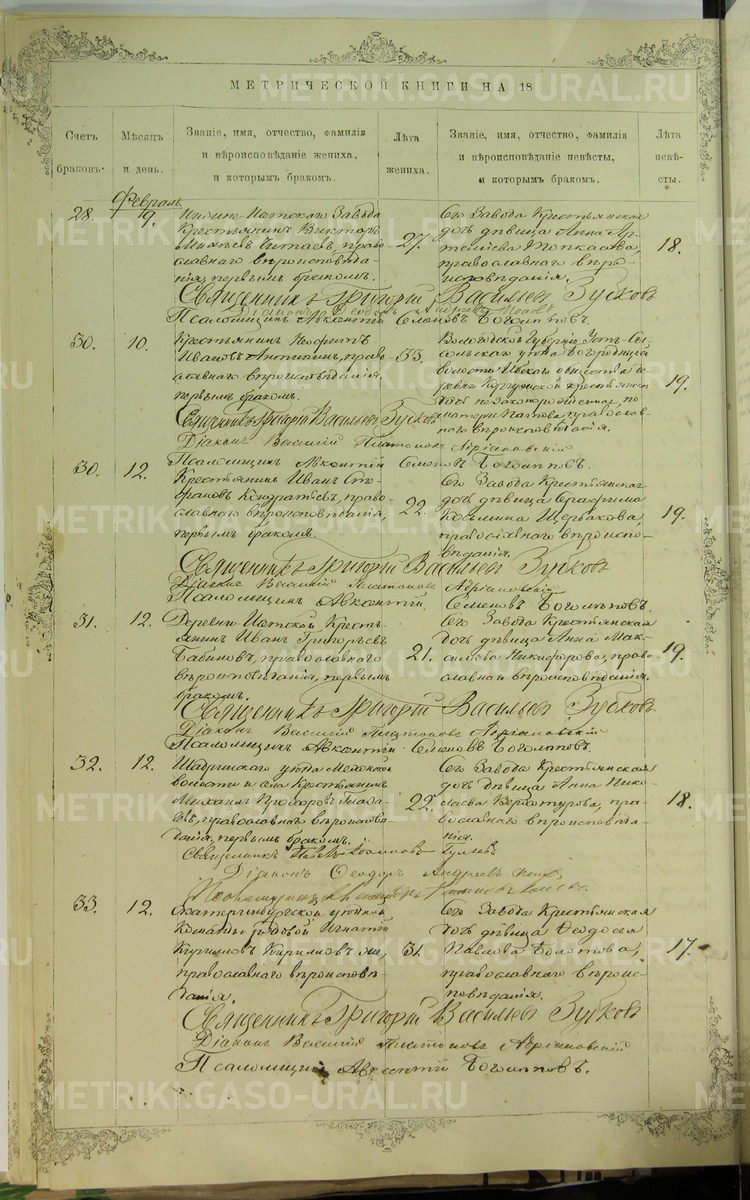 МЕТРИЧЕСКОЙ КНИГИ НА 18
Счетъ браковъ.
Мѣсяцъ и день.
Званіе, имя, отчество, фамилія и вѣроисповѣданіе жениха, и которымъ бракомъ.
Лѣта жениха.
Званіе, имя, отчество, фамилія и вѣроисповѣданіе невѣсты, и которымъ бракомъ.
Лѣта невѣсты.
Февраль
28. 9.
Нижне Исетскаго Завода
Крестьянинъ Викторъ
православнаго вѣроисповѣданія, первымъ бракомъ.
27.
Сего Завода Крестьянская
дочь дѣвица Анна Ар-
темьева
православнаго вѣро-
исповѣданія.
18.
Священникъ Григорій Васильевъ Зубковъ
Діаконъ Ѳеодоръ Андреевъ Поповъ
Псаломщикъ Авксентій Семеновъ Боголѣповъ.
30. 10.
Крестьянинъ Неофитъ
Ивановъ Антипинъ, право-
славнаго вѣроисповѣданія,
первымъ бракомъ.
33.
Вологодской Губерніи Усть-Сы-
сольскаго уѣзда
волости
крестьянская
дочь незаконорожденная, по
православ-
наго вѣроисповѣданія.
19.
Священникъ Григорій Васильевъ Зубковъ
Діаконъ Василій Платоновъ Адріановскій
Псаломщикъ Авксентій Семеновъ Боголѣповъ.
30. 12.
Крестьянинъ Иванъ Сте-
фановъ Кондратьевъ, право-
славнаго вѣроисповѣданія,
первымъ бракомъ.
22.
Сего Завода Крестьянская
дочь дѣвица Серафима
Козьмина Щербакова,
православнаго вѣроиспо-
вѣданія.
19.
Священникъ Григорій Васильевъ Зубковъ
Діаконъ Василій Платоновъ Адріановскій
Псаломщикъ Авксентій Семеновъ Боголѣповъ.
31. 12.
Деревни Истской Кресть-
янинъ Иванъ Григорьевъ
Бабиновъ, православнаго
вѣроисповѣданія, первымъ
бракомъ.
21.
Сего Завода Крестьянская
дочь дѣвица Анна Мак-
симова Никифорова, право-
славнаго вѣроисповѣданія.
19.
Священникъ Григорій Васильевъ Зубковъ
Діаконъ Василій Платоновъ Адріановскій
Псаломщикъ Авксентій Семеновъ Боголѣповъ.
32. 12.
Шадринскаго уѣзда Мехонской
волости и села Крестьянинъ
Михаилъ Прохоровъ
православнаго вѣроиспове-
данія, первымъ бракомъ.
22.
Сего Завода Крестьянская
дочь дѣвица Анна Нико-
лаева Верхотурова, пра-
вославнаго вѣроисповѣда-
нія.
18.
Священникъ
Діаконъ Ѳеодоръ Андреевъ Поповъ
33. 12.
Екатеринбургской уѣздной
Команды рядовой Игнатій
Кириловъ Кириловъ же,
православнаго вѣроисповѣ-
данія.
31.
Сего Завода Крестьянская
дочь дѣвица Ѳеодосія
Павлова Болотова,
православнаго вѣроис-
повѣданія.
17.
Священникъ Григорій Васильевъ Зубковъ
Діаконъ Василій Платоновъ Адріановскій
Псаломщикъ Авксентій Боголѣповъ.
METRIKI.GASO-URAL.RU